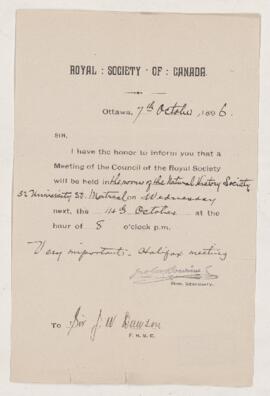 ROYAL : SOCIETY · OF : CANADA.
Ottawa, 7th October, 1896.
SIR,
I have the honor to inform you that a
Meeting of the Council of the Royal Society
will be held in the rooms of the Natural History Society
32 University St. Montreal on Wednesday
next, the 14th October at the
hour of 8 o'clock p.m.
Very important - Halifax meeting
Hon. Secretary.
To Sir J. W. Dawson
F.R.S.C.